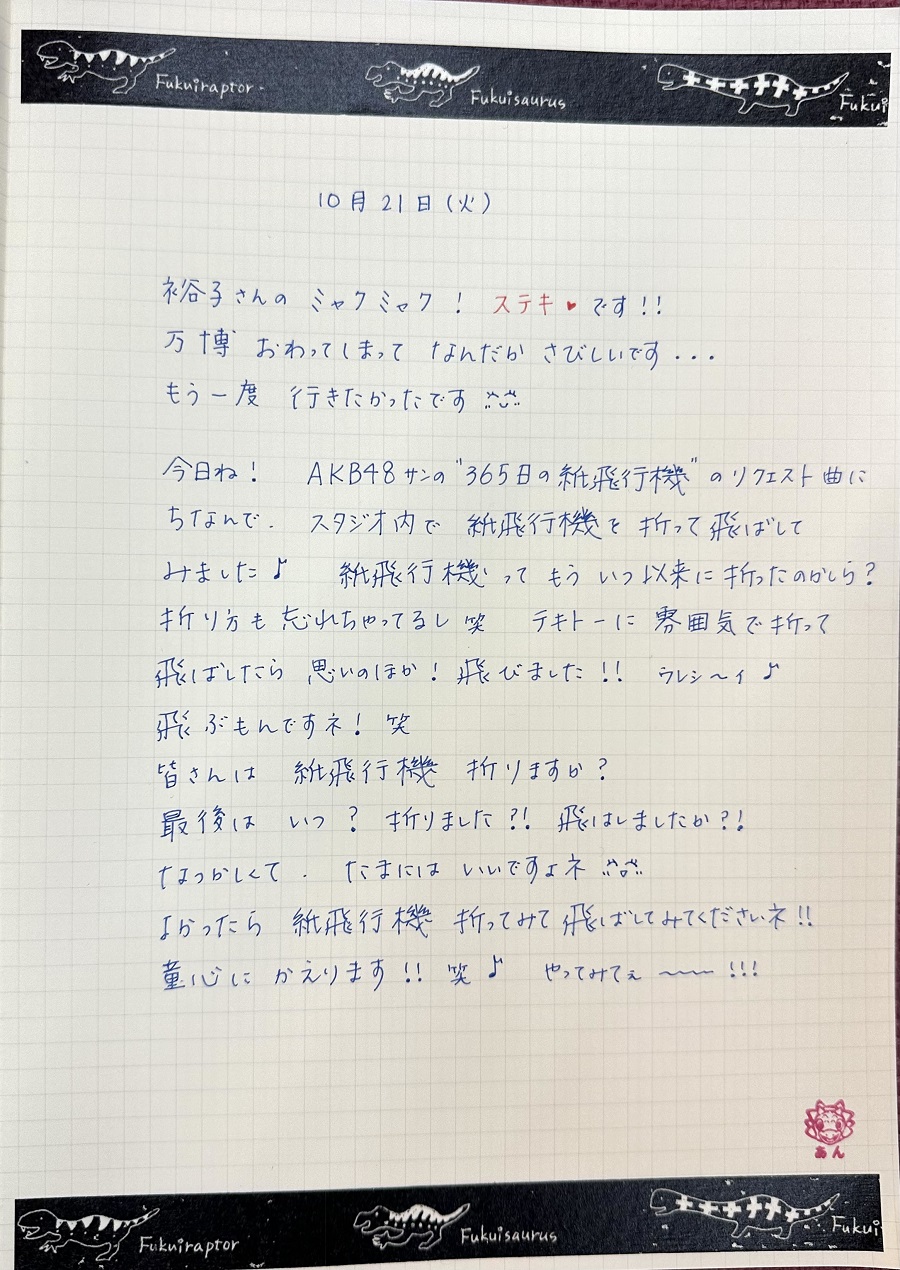 Fukuiraptor Fukuisaurus Fukui
10月21日(火)
裕子さんの ミャクミャク！ ステキ♥です!!
万博 おわってしまって なんだか さびしいです...
もう一度 行きたかったです
今日ね！ AKB48サンの"365日の紙飛行機"のリクエスト曲に
ちなんで. スタジオ内で 紙飛行機を 折って飛ばして
みました♪ 紙飛行機って もう いつ以来に折ったのかしら？
折り方も忘れちゃってるし 笑 テキトーに 雰囲気で折って
飛ばしたら 思いのほか！ 飛びました!! ウレシ～イ♪
飛ぶもんですネ！ 笑
皆さんは 紙飛行機 折りますか？
最後は いつ？ 折りました?! 飛ばしましたか?!
なつかしくて. たまには いいですよネ
よかったら 紙飛行機 折ってみて飛ばしてみてくださいネ!!
童心に かえります!! 笑♪ やってみてぇ～～!!!
あん
Fukuiraptor Fukuisaurus Fukui